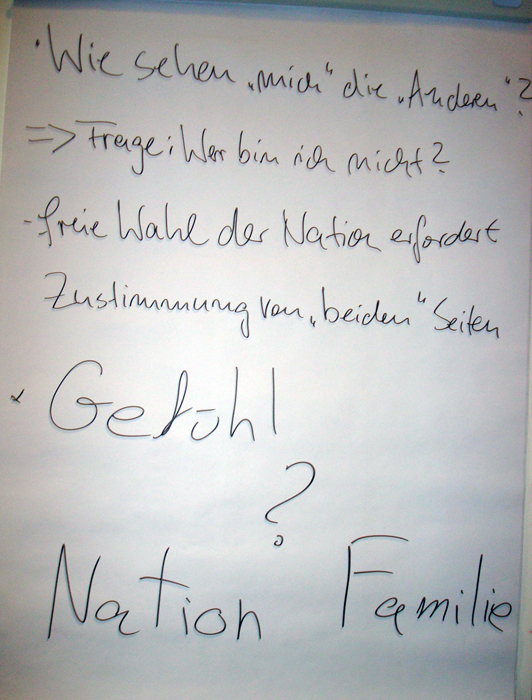 · Wie sehen „mich“ die „Anderen“?
=> Frage: Wer bin ich nicht?
- freie Wahl der Nation erfordert
Zustimmung von „beiden“ Seiten
· Gefühl
?
Nation Familie